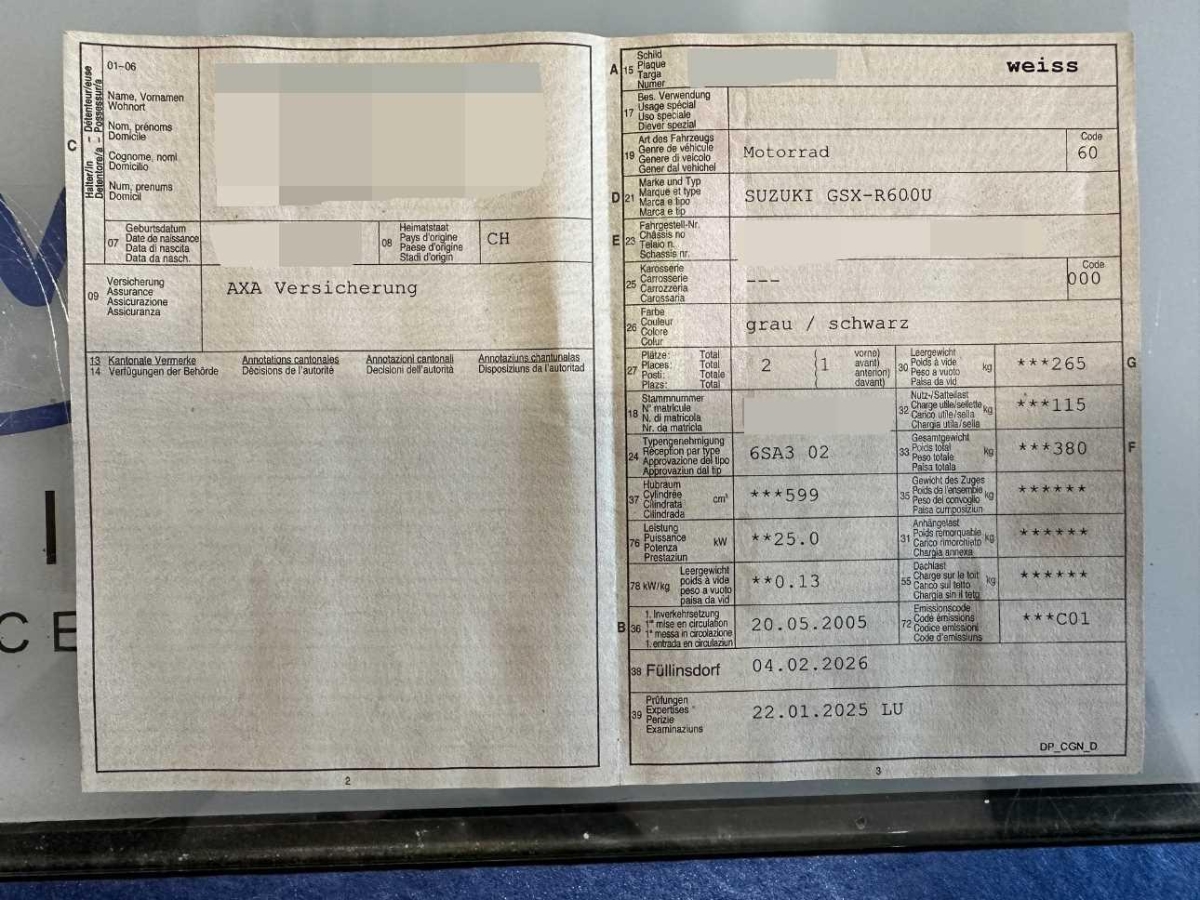 01-06
Halter/in – Détenteur/euse
Detentore/a – Possessur/a
C
Name, Vornamen
Wohnort
Nom, prénoms
Domicile
Cognome, nomi
Domicilio
Num, prenums
Domicil
07
Geburtsdatum
Date de naissance
Data di nascita
Data da nasch.
08
Heimatstaat
Pays d'origine
Paese d'origine
Stadi d'origin
CH
09
Versicherung
Assurance
Assicurazione
Assicuranza
AXA Versicherung
13 Kantonale Vermerke
14 Verfügungen der Behörde
Annotations cantonales
Décisions de l'autorité
Annotazioni cantonali
Decisioni dell'autorità
Annotaziuns chantunalas
Disposiziuns da l'autoritad
2
A 15
Schild
Plaque
Targa
Numer
weiss
17
Bes. Verwendung
Usage spécial
Uso speciale
Diever spezial
19
Art des Fahrzeugs
Genre de véhicule
Genere di veicolo
Gener dal vehichel
Motorrad
Code
60
D 21
Marke und Typ
Marque et type
Marca e tipo
Marca e tip
SUZUKI GSX-R600U
E 23
Fahrgestell-Nr.
Châssis no
Telaio n.
Schassis nr.
25
Karosserie
Carrosserie
Carrozzeria
Carossaria
---
Code
000
26
Farbe
Couleur
Colore
Colur
grau / schwarz
27
Plätze: Total
Places: Total
Posti: Totale
Plazs: Total
2 (1
vorne)
avant)
anteriori)
davant)
30
Leergewicht
Poids à vide
Peso a vuoto
Paisa da vid
kg
***265
G
18
Stammnummer
N° matricule
N. di matricola
Nr. da matricla
32
Nutz-/Sattellast
Charge utile/sellette
Carico utile/sella
Chargia utila/sella
kg
***115
24
Typengenehmigung
Réception par type
Approvazione del tipo
Approvaziun dal tip
6SA3 02
33
Gesamtgewicht
Poids total
Peso totale
Paisa totala
kg
***380
F
37
Hubraum
Cylindrée
Cilindrata
Cilindrada
cm³
***599
35
Gewicht des Zuges
Poids de l'ensemble
Peso del convoglio
Paisa cumposiziun
kg
******
76
Leistung
Puissance
Potenza
Prestaziun
kW
**25.0
31
Anhängelast
Poids remorquable
Carico rimorchiato
Chargia annexa
kg
******
78 kW/kg
Leergewicht
poids à vide
peso a vuoto
paisa da vid
**0.13
55
Dachlast
Charge sur le toit
Carico sul tetto
Chargia sin il tetg
kg
******
B 36
1. Inverkehrsetzung
1re mise en circulation
1a messa in circolazione
1. entrada en circulaziun
20.05.2005
72
Emissionscode
Code émissions
Codice emissioni
Code d'emissiuns
***C01
38 Füllinsdorf
04.02.2026
39
Prüfungen
Expertises
Perizie
Examinaziuns
22.01.2025 LU
DP_CGN_D
3
I
CE